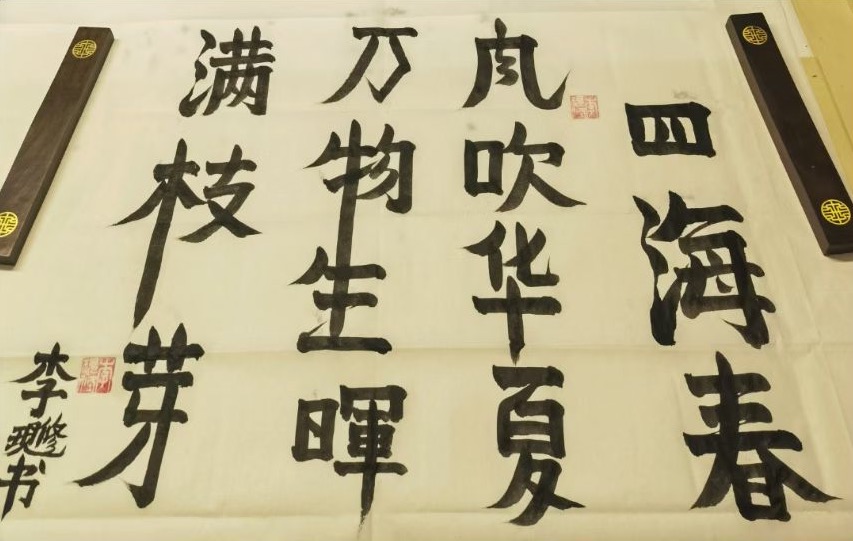 四海春
风吹华夏
万物生暉
满枝芽
李
书